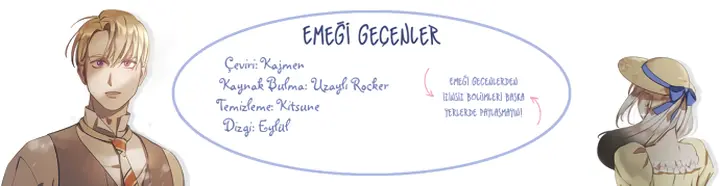 EMEĞİ GEÇENLER
Çeviri: Kajmen
Kaynak Bulma: Uzaylı Rocker
Temizleme: Kitsune
Dizgi: Eylül
EMEĞİ GEÇENLERDEN
İZİNSİZ BÖLÜMLERİ BAŞKA
YERLERDE PAYLAŞMAYIN!